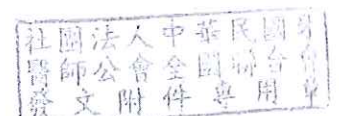 社團法人中華民國
醫師公會全國聯合會
發文附件專用章